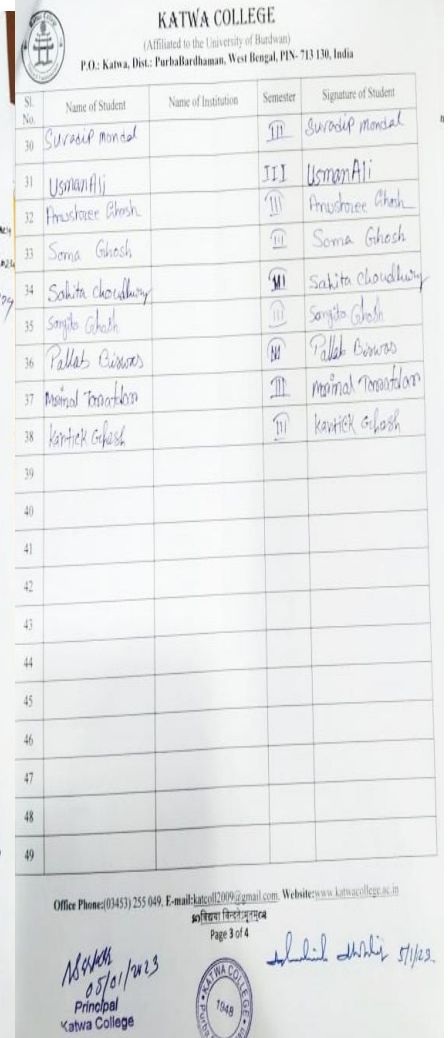 KATWA COLLEGE
(Affiliated to the University of Burdwan)
P.O.: Katwa, Dist.: PurbaBardhaman, West Bengal, PIN- 713 130, India
Sl. No. Name of Student Name of Institution Semester Signature of Student
30 Suradip Mondal III Suradip Mondal
31 Usman Ali III Usman Ali
32 Anushree Ghosh III Anushree Ghosh
33 Soma Ghosh III Soma Ghosh
34 Sahita Choudhury III Sahita Choudhury
35 Ghosh III Ghosh
36 Pallab Biswas III Pallab Biswas
37 III
38 Kartick Ghosh III Kartick Ghosh
39
40
41
42
43
44
45
46
47
48
49
Office Phone:(03453) 255 049, E-mail:katcoll2009@gmail.com, Website:www.katwacollege.ac.in
Page 3 of 4
05/01/2023
Principal
Katwa College
KATWA COLLEGE
1948